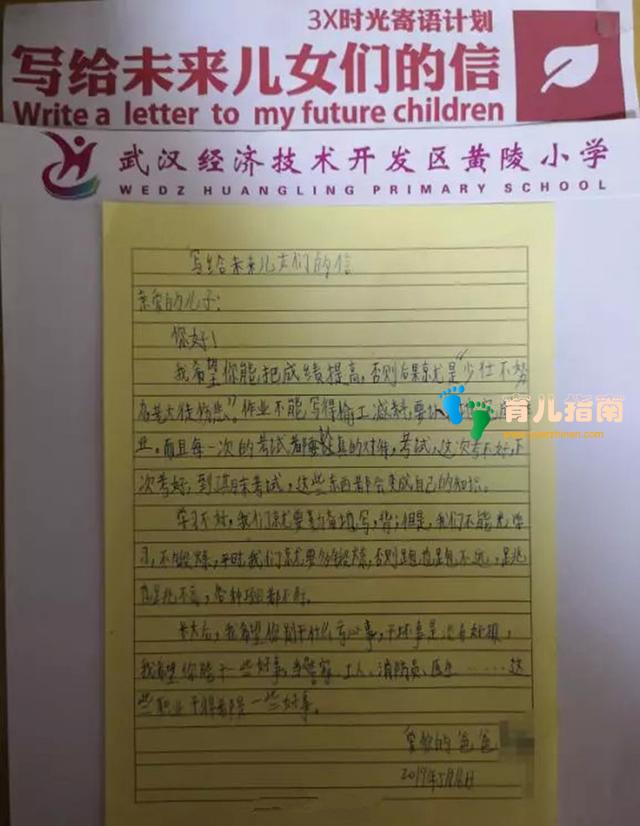 3X时光寄语计划
写给未来儿女们的信
Write a letter to my future children
武汉经济技术开发区黄陵小学
WEDZ HUANGLING PRIMARY SCHOOL
写给未来儿女们的信
亲爱的儿子:
你好!
我希望你能把成绩提高,否则后果就是“少壮不努
力老大徒伤悲”。作业不能写得偷工减料,要
业,而且每一次的考试都要认真的对待,考试,这次考不好,下
次考好,到期末考试,这些东西都会变成自己的知识。
学习不好,我们就要勤奋填写,背;但是,我们不能光学
习,不锻炼,平时,我们就要多锻炼,否则跑也是跑不远,是跳
也是跳不高,各种项目都不行。
长大后,我希望你别干什么亏心事,干坏事是没有好报,
我希望你能干一些好事,当警察、工人、消防员、医生……这
些职业干得都是一些好事。
爱你的爸爸
2019年5月
育儿指南